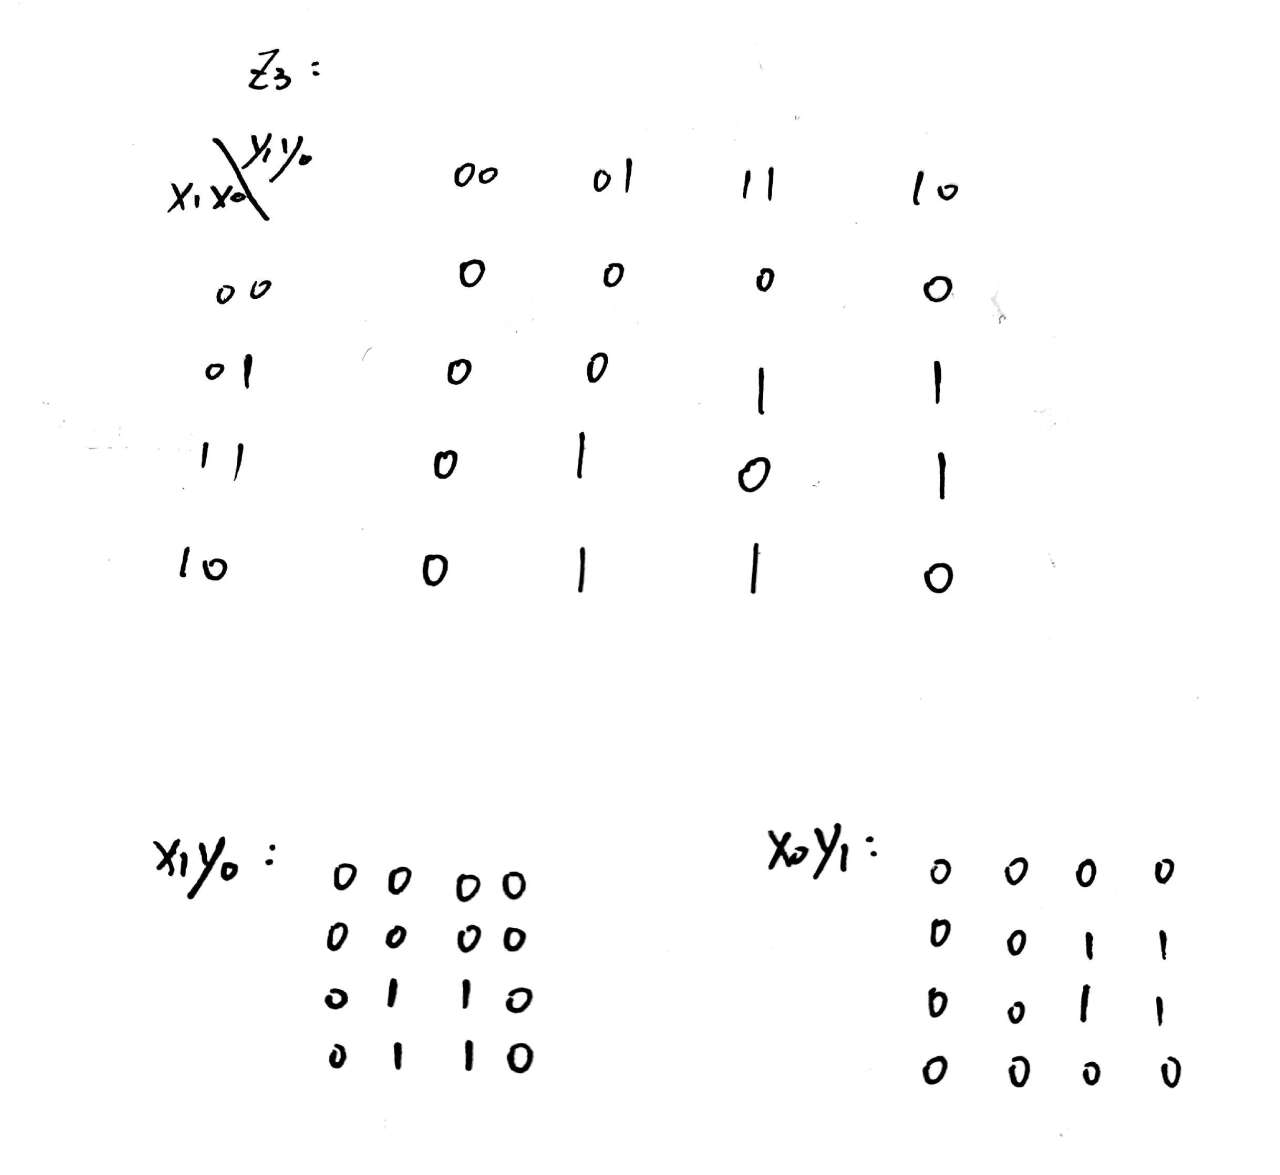 Z₃ :
X₁X₀ \ Y₁Y₀ 00 01 11 10
00 0 0 0 0
01 0 0 1 1
11 0 1 0 1
10 0 1 1 0
X₁Y₀ :
0 0 0 0
0 0 0 0
0 1 1 0
0 1 1 0
X₀Y₁ :
0 0 0 0
0 0 1 1
0 0 1 1
0 0 0 0